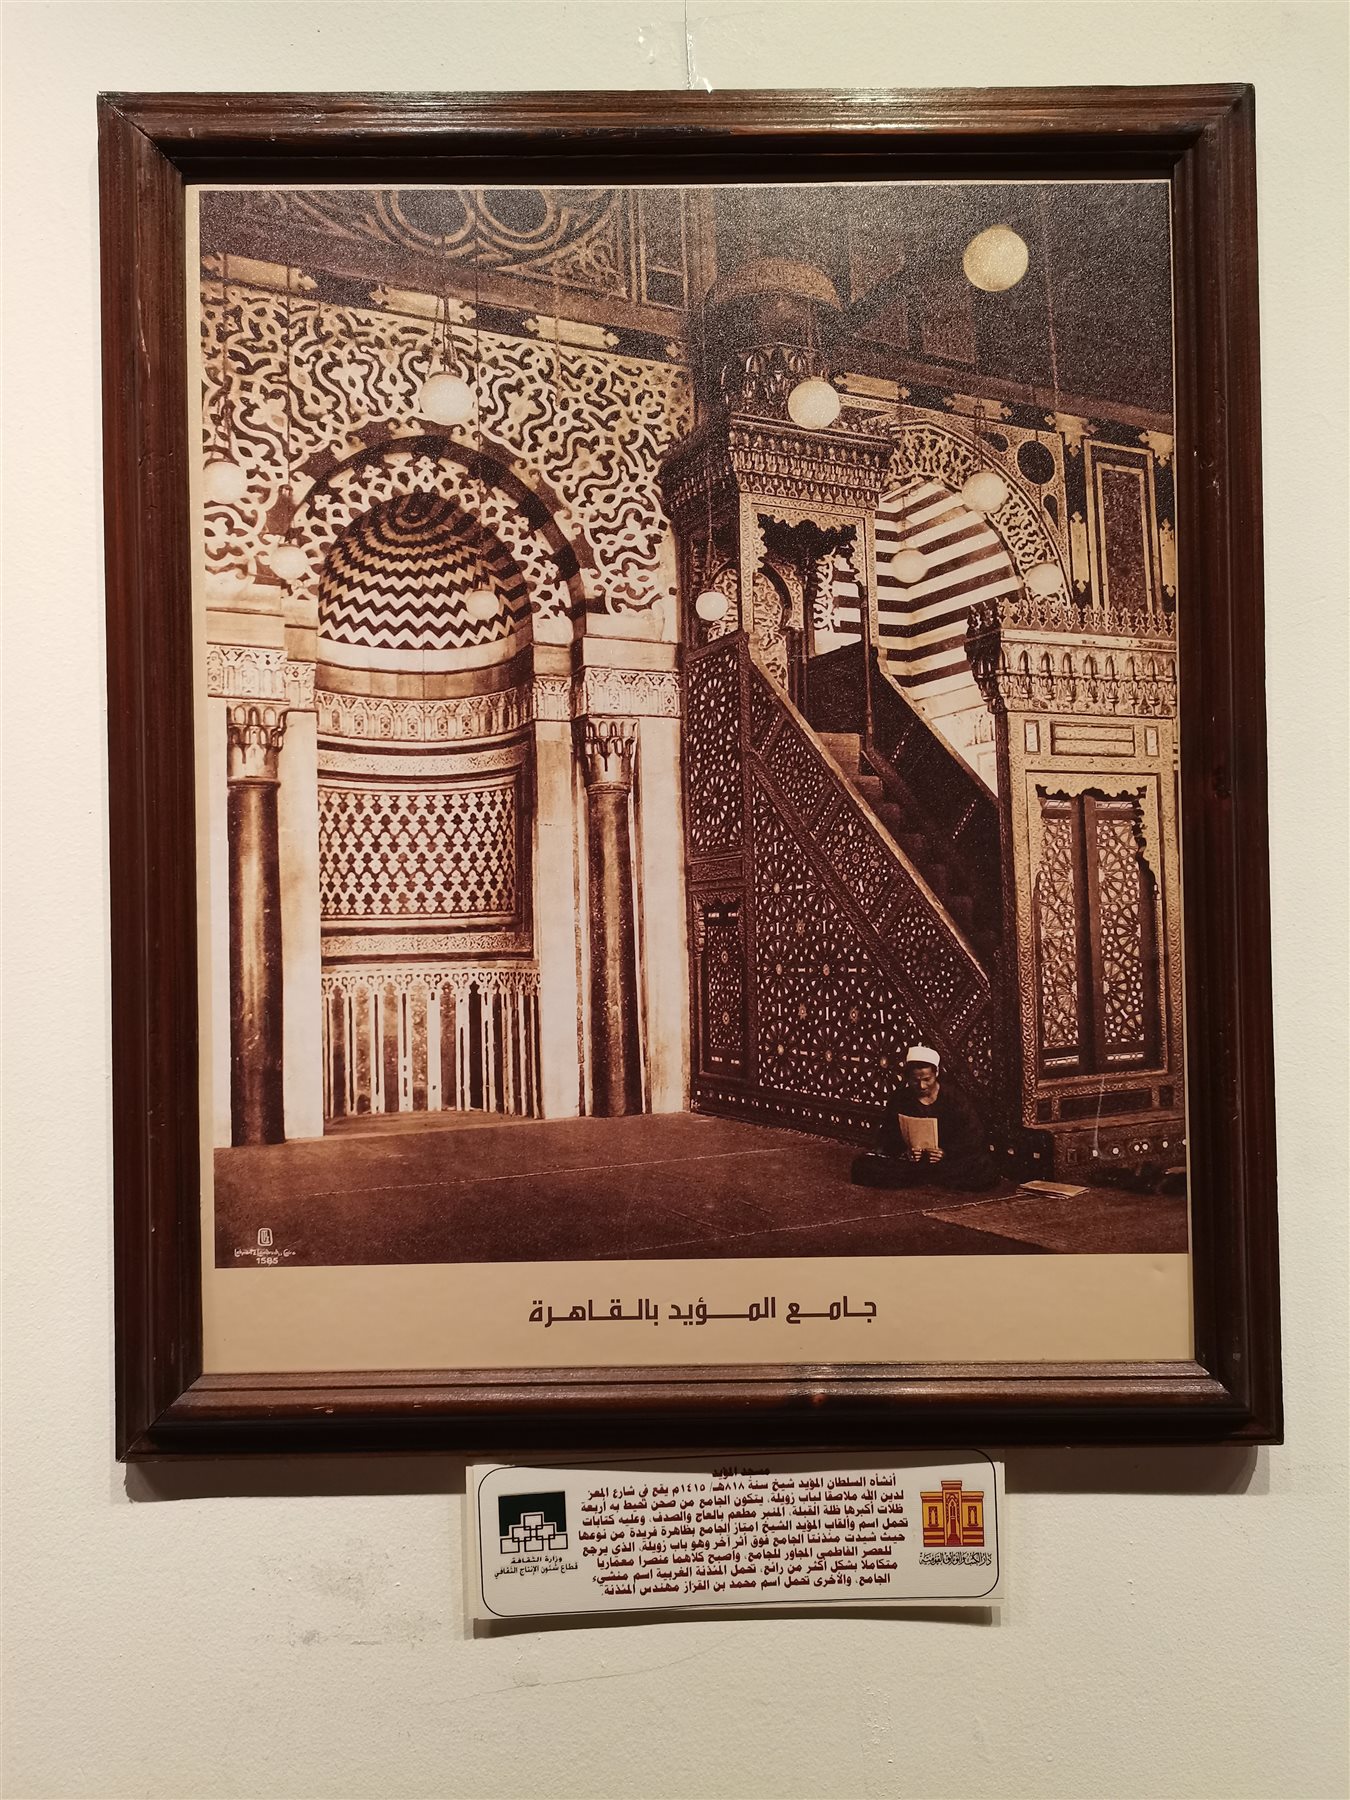 Lehnert & Landrock, Cairo
1585
جامع المؤيد بالقاهرة
مسجد المؤيد
أنشأه السلطان المؤيد شيخ سنة ٨١٨هـ/ ١٤١٥م يقع في شارع المعز
لدين الله ملاصقا لباب زويلة، يتكون الجامع من صحن تحيط به أربعة
ظلات أكبرها ظلة القبلة، المنبر مطعم بالعاج والصدف، وعليه كتابات
تحمل اسم وألقاب المؤيد الشيخ امتاز الجامع بظاهرة فريدة من نوعها
حيث شيدت مئذنتا الجامع فوق أثر آخر وهو باب زويلة، الذي يرجع
للعصر الفاطمي المجاور للجامع، وأصبح كلاهما عنصرا معماريا
متكاملا بشكل أكثر من رائع، تحمل المئذنة الغربية اسم منشيء
الجامع، والأخرى تحمل اسم محمد بن القزاز مهندس المئذنة.
دار الكتب والوثائق القومية
وزارة الثقافة
قطاع شئون الإنتاج الثقافي